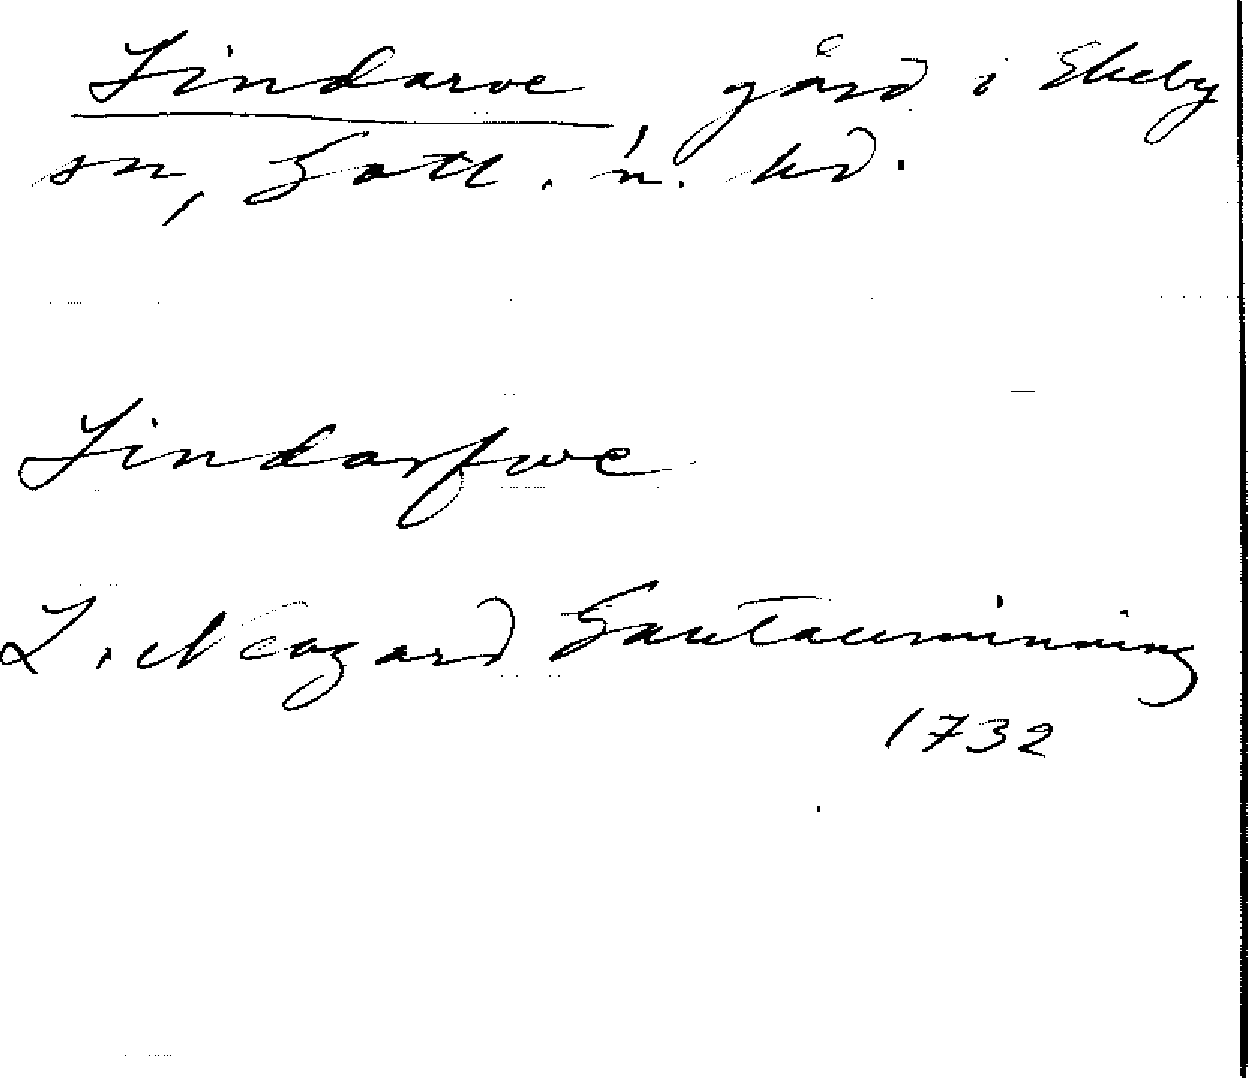 Lindarve, gård i Ekeby
sn, Gotl. n. hd.
Lindarfwe
L. Neogard Gautauminning
1732